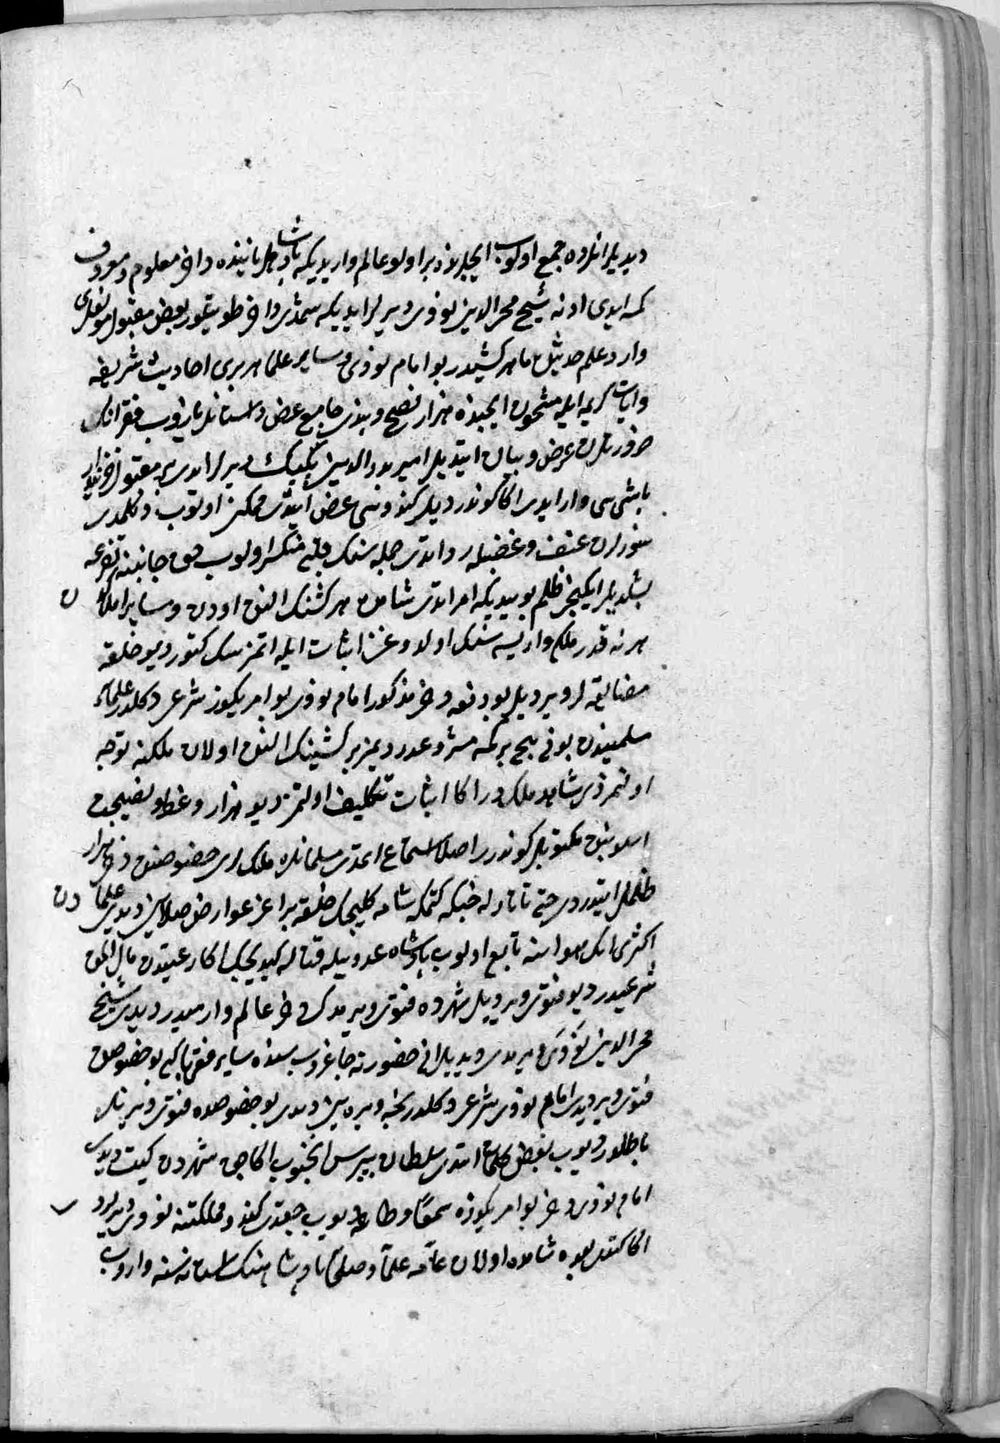 دیدیلر انلرده جمع اولوب ایچلرنده بر اولو عالم وار یدیکه پادشاهلر یاننده داخی معلوم و معروف
کمسه ایدی ادنه شیخ محی الدین نووی دیرلر ایدیکه شمدی داخی طوتیلور بعض مقبول
وارد علم حدیثده ماهر کشیدر بو امام نووی و سایر علما هر بری احادیث شریفه
وایات کریمه ایله مشحون ایچنده هزار نصح و پند جامع عرض داستانلر یازوب فقرانک
ضرورتلرن عرض و بیان ایتدیلر امیر بدر الدین بکلیک دیرلر ایدی بر مقبول خزینه دار
باشی سی وار ایدی اکا کوندردیلر کندوسی عرض ایتدی ممکن اولوب دکلمدی
سوزلرن عنف و غضبله رد ایتدی جمله سنک قلبی منکسر اولوب حق جانبنه تضرعه
بشلدیلر ایکنجی ظلم بو ایدیکه امر ایتدی شامده هر کشنک النده اودن و سایر املاکدن
هر نه قدر ملکی واریسه سنک اولدوغن اثبات ایله اتمزسک کتور دیو خلقه
مضایقه لر ویردیلر بو دفعه دخی مذکور امام نووی بو امریکوز شرعی دکلدر علماء
مسلمیندن بونی هیچ بر کمسه مشروعدر دیمز بر کشینک النده اولان ملکنه توجه
اولنمز ذی شاهد ملکدر اکا اثبات تکلیف اولنمز دیو هزار وعظ و نصیحت
اسلوبنده مکتوبلر کوندرر اصلا استماع ایتمدی مسلمانلره ملکلری خصوصنده دخی هزار
ظلملر ایتدردی حتی تاتارله جنکه کتمکه شامه کلیجک خلقه بر اغز عوارض صلاین دیدی علمادن
اکثری انک هواسنه تابع اولوب پادشاه عدو ایله قتاله کیدیجک اکا رعیتدن مال المق
شرعیدر دیو فتوی ویردیلر شهرده فتوی ویرمدک دخی عالم وار میدر دیدی شیخ
محی الدین نووی ویرمدی دیدیلر انی حضورنه چاغروب سنده سایر فقهایا کبی بو خصوصده
فتوی ویر دیدی امام نووی شرعی دکلدر نیجه ویره یین دیدی بو خصوصده فتوی ویرنلر
یاکلور دیوب بعض کلمات ایتدی سلطان بیبرس انجنوب اکا چق شهردن کیت دیدی
امام نووی دخی بو امریکوزه سمعا وطاعة دیوب چقدی کندو مملکتنه نووی دیرلردی
اکا کتدی بعده شامده اولان عامه علما و صلحا پادشاهنک استانه سنه واروب